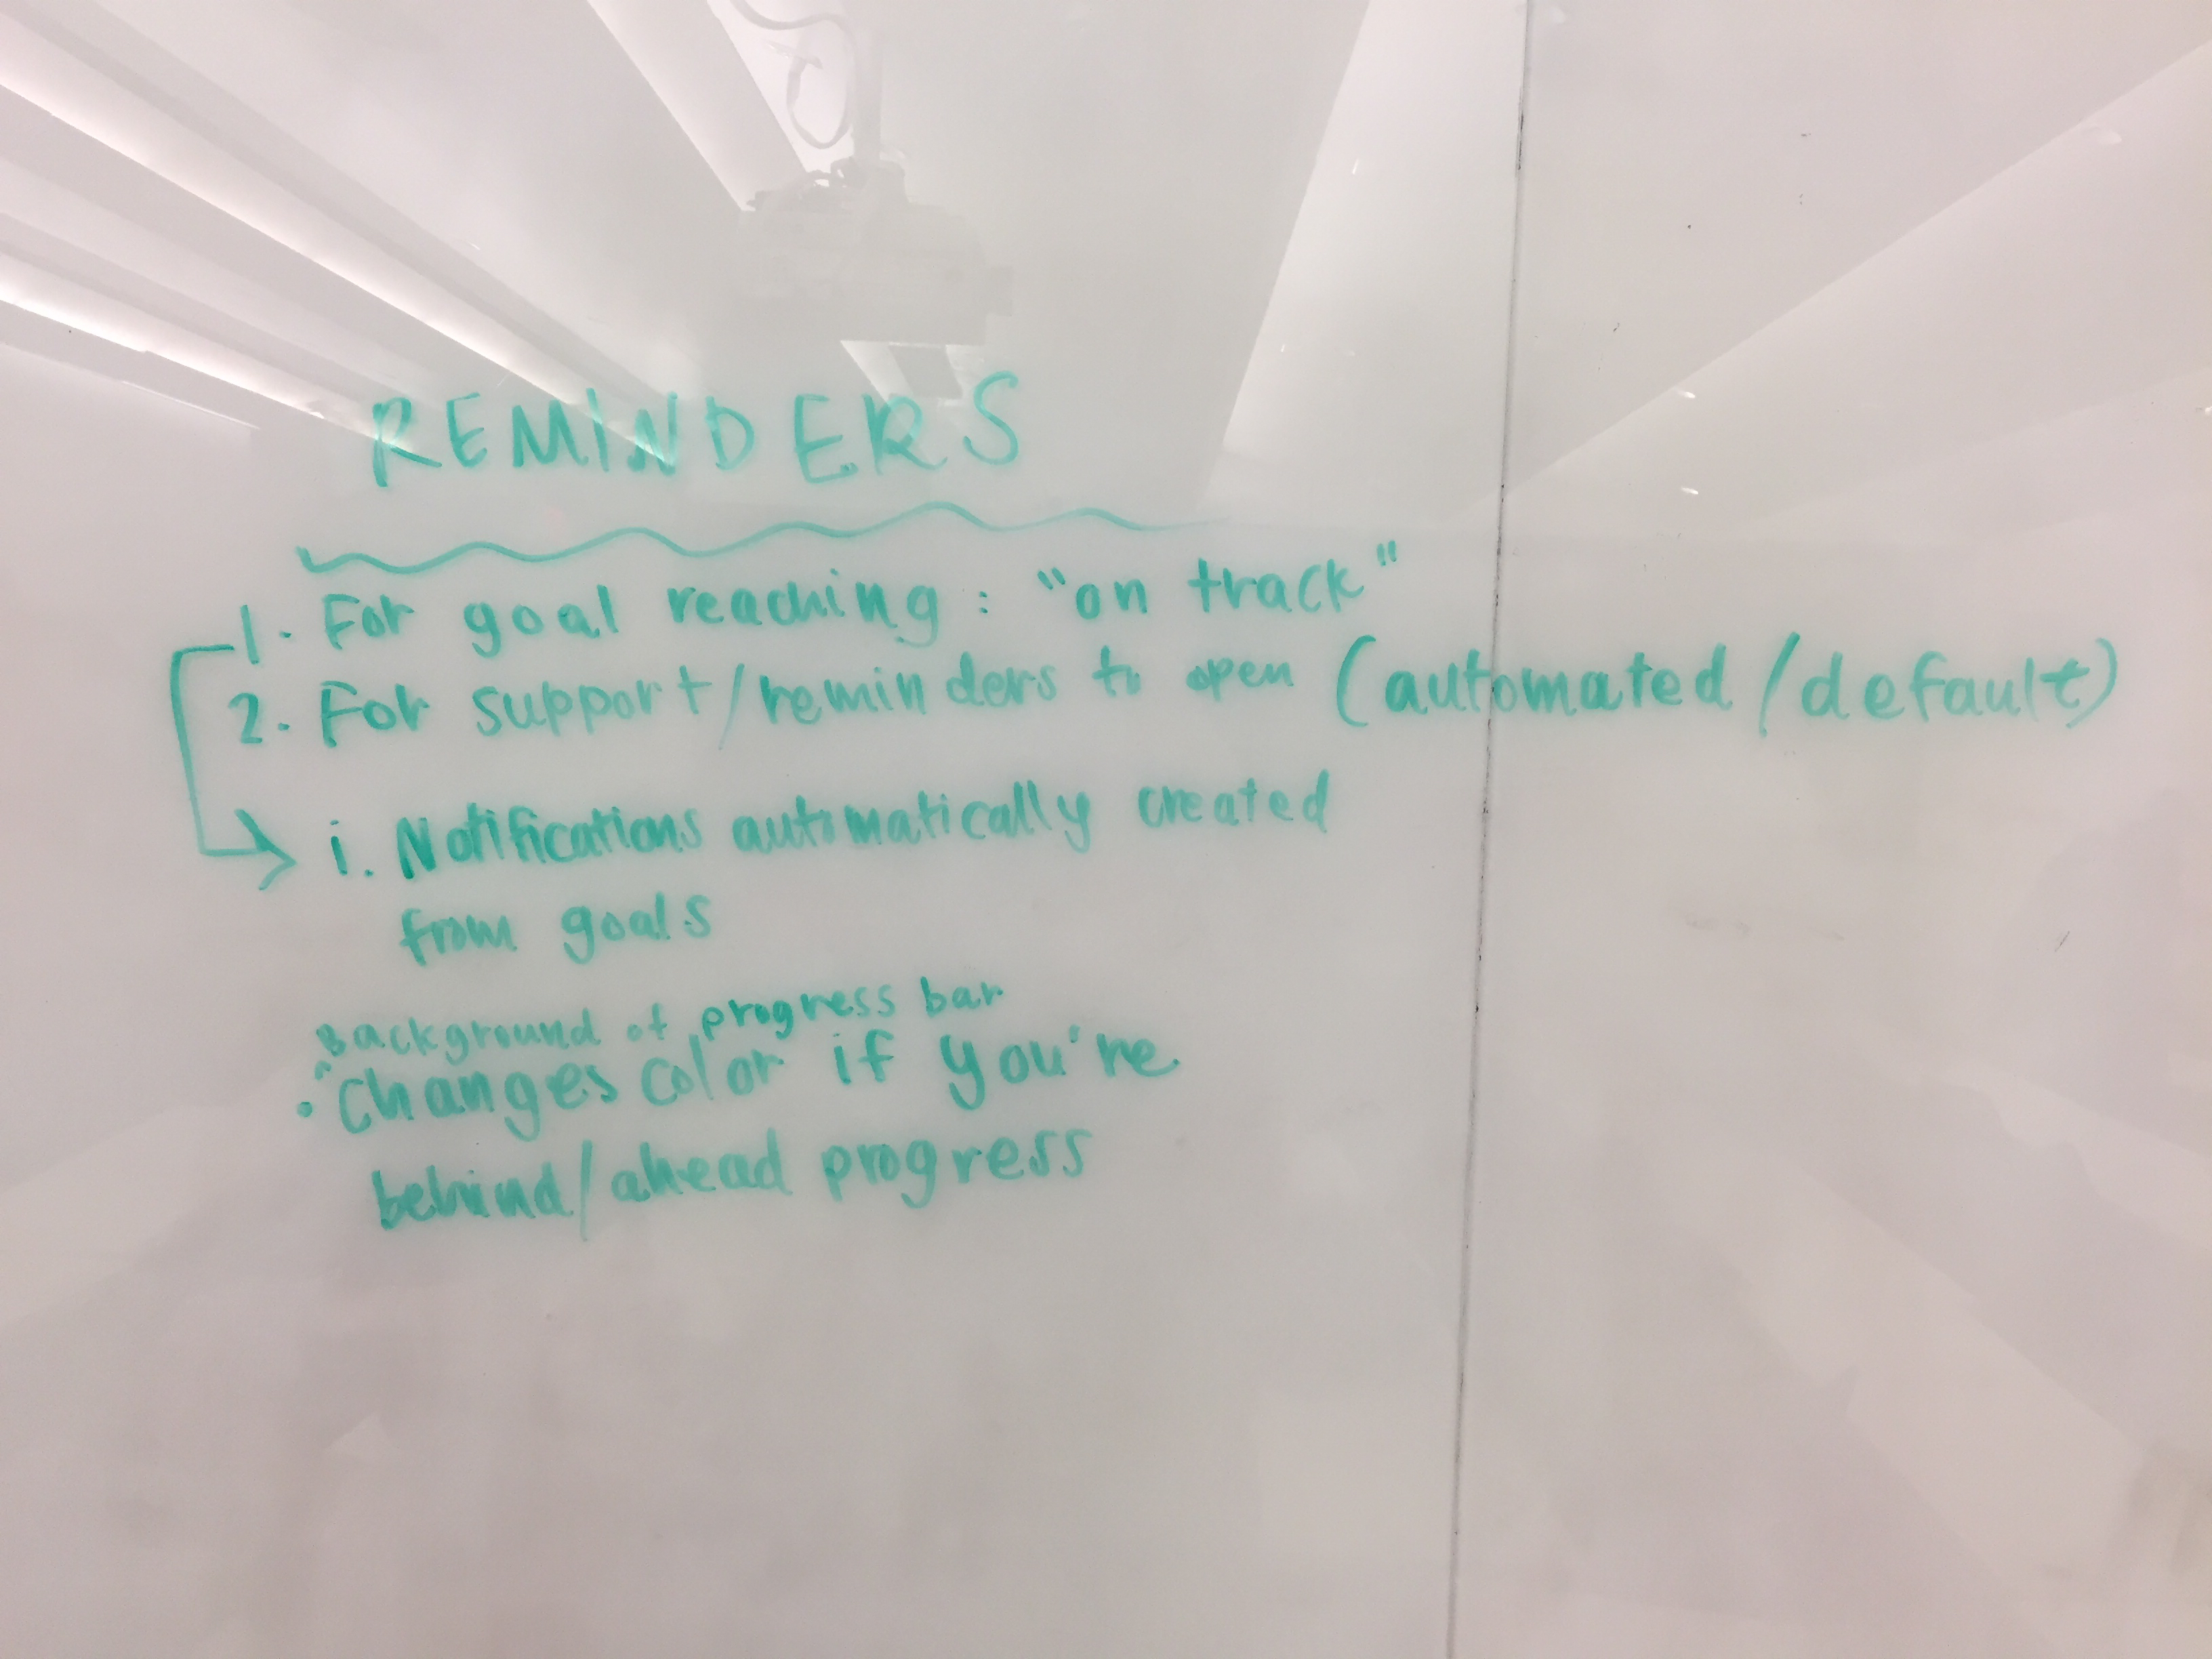 REMINDERS
1. For goal reaching: "on track"
2. For support/reminders to open (automated/default)
i. Notifications automatically created
from goals
Background of progress bar
• Changes color if you're
behind/ahead progress